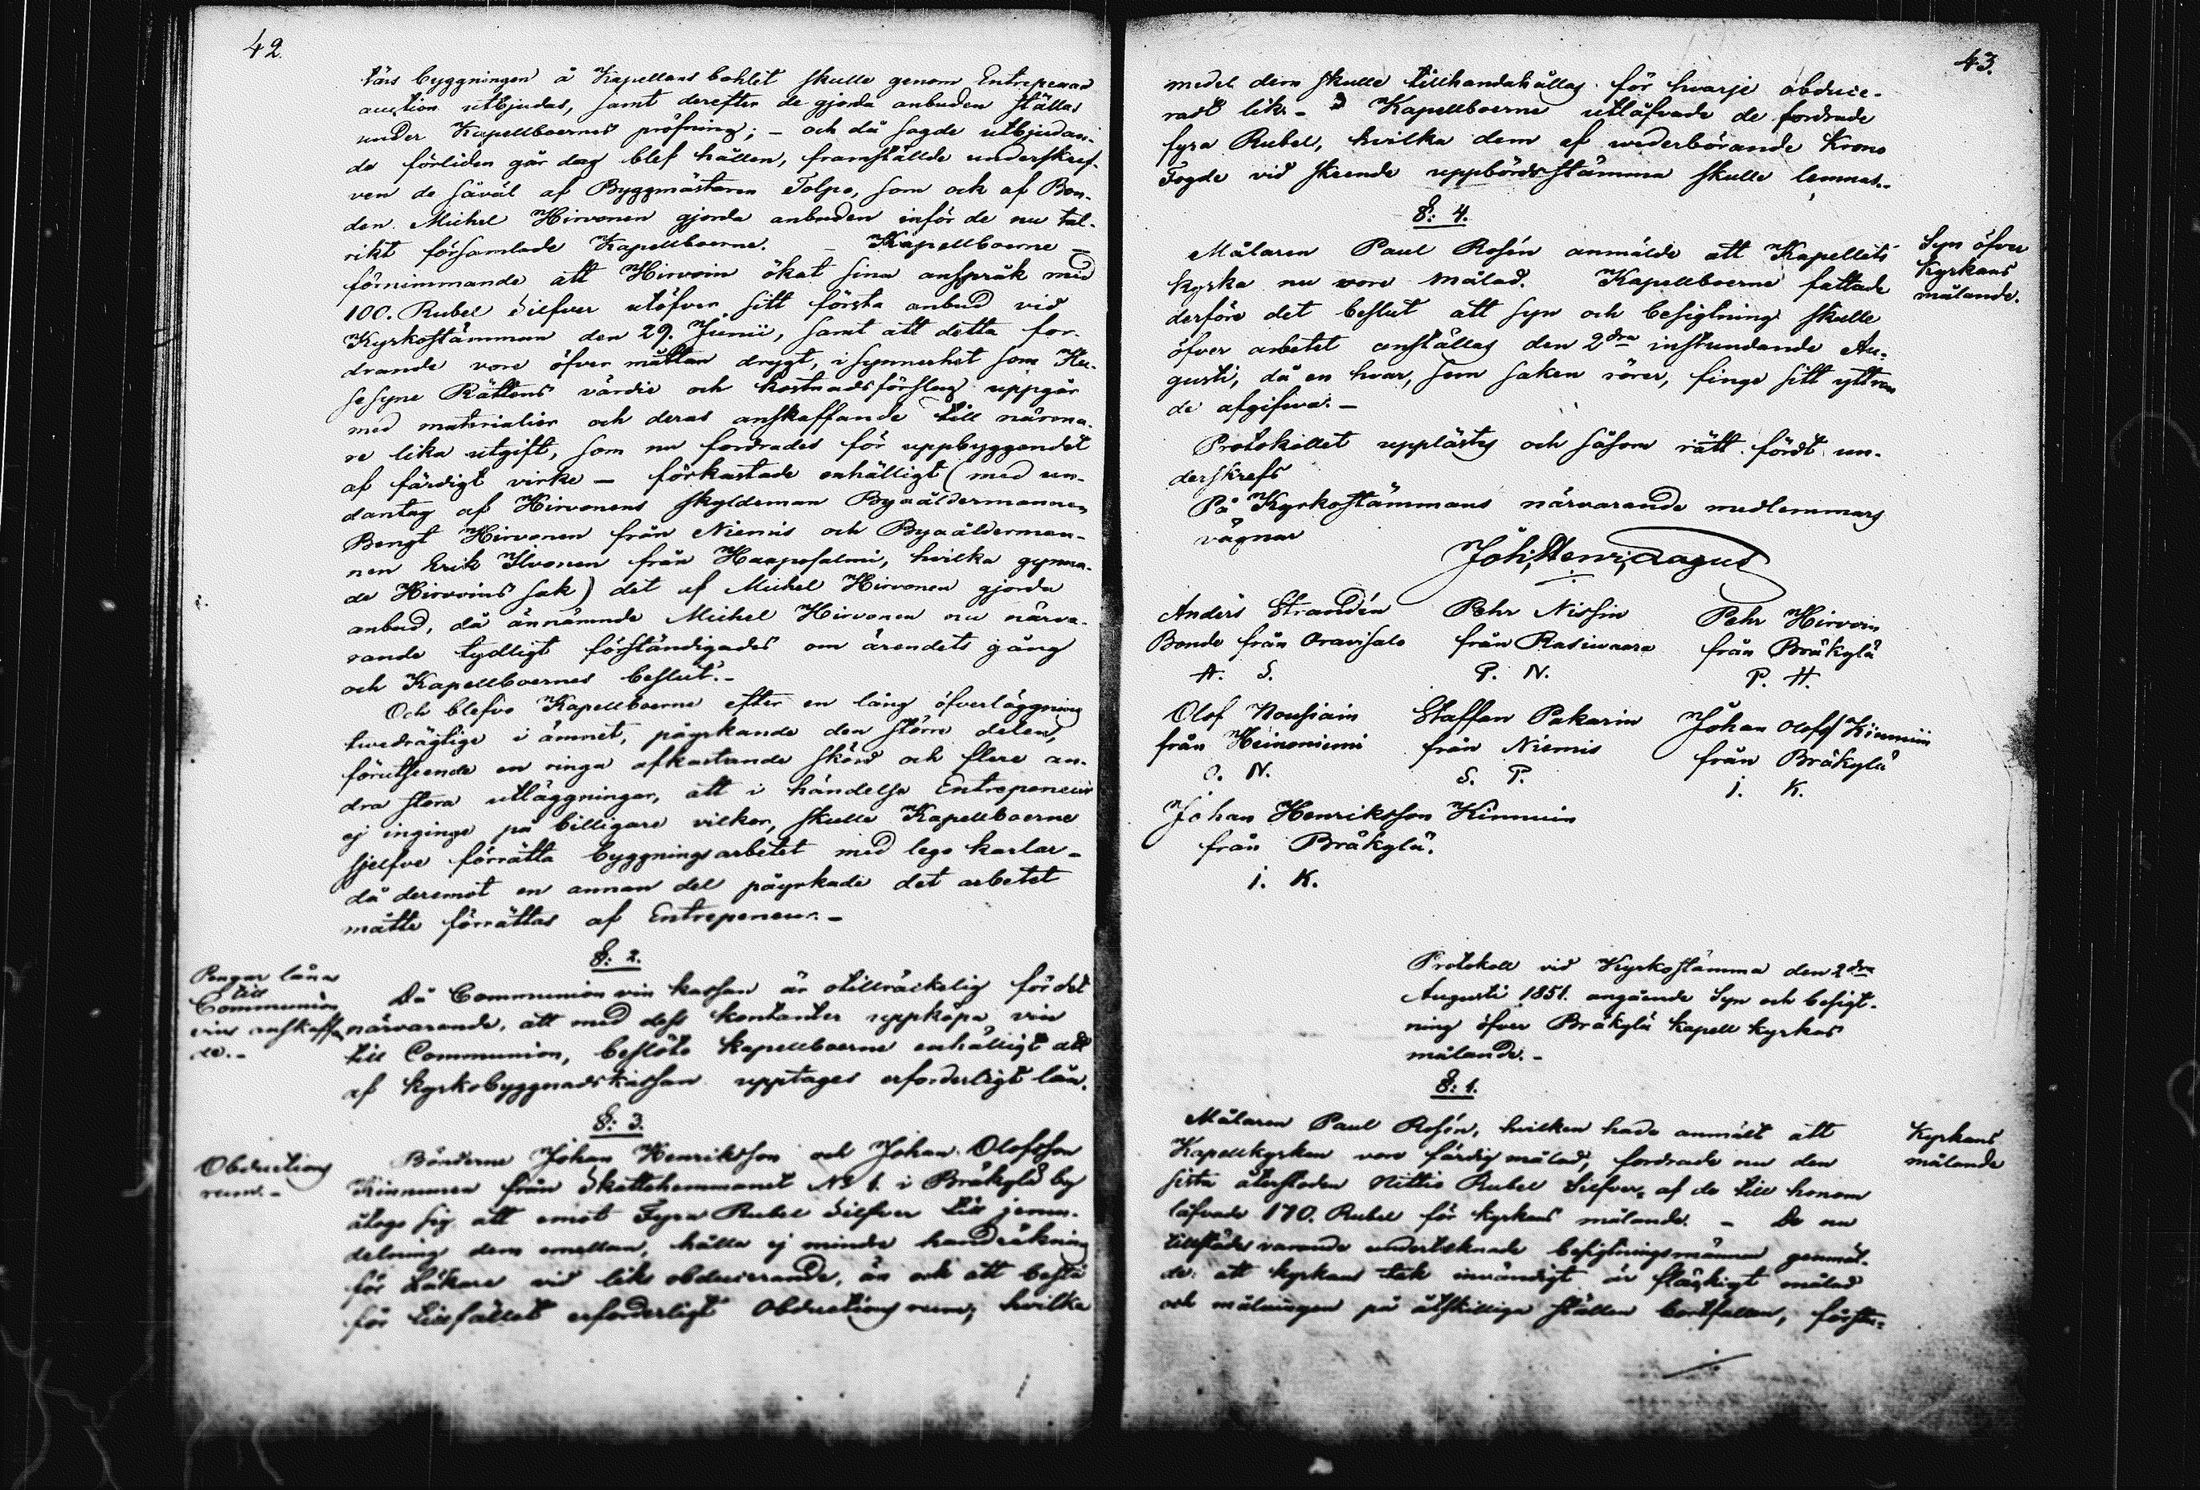 42.
tärs byggningen å Kapellans bohlet skulle genom Entrepenad
auction utbjudas, samt derefter de gjorda anbuden ställas
under Kapellboernes pröfning; – och då sagde utbjudan-
de förliden går dag blef hållen, framställde underskrif-
ven de såväl af Byggmästaren Tolpo, som och af Bon-
den Michel Hirvonen gjorda anbuden inför de nu tal-
rikt församlade Kapellboerne. – Kapellboerne –
förnimmande att Hirvoin ökat sina anspråk med
100. Rubel Silfver utöfver sitt första anbud vid
Kyrkostämman den 29. Junii, samt att detta for-
drande vore öfver måttan drygt, i synnerhet som Hu-
sesyne Rättens värdie och kostnadsförslag uppgår
med materialier och deras anskaffande till närma-
re lika utgift, som nu fordrades för uppbyggandet
af färdigt virke – förkastade enhälligt (med un-
dantag af Hirvonens skyldeman Byaåldermannen
Bengt Hirvonen från Niemis och Byaålderman-
nen Erik Ilvonen från Haaposalmi, hvilka gynna-
de Hirvoins sak) det af Michel Hirvonen gjorda
anbud, då ännämnde Michel Hirvonen nu närva-
rande tydligt förständigades om ärendets gång
och Kapellboernes beslut. –
Och blefvo Kapellboerne efter en lång öfverläggning
twedrägtige i ämnet, påyrkande den större delen,
förutseende en ringa afkastande skörd och flere an-
dra stora utläggningar, att i händelse Entrepeneur
ej inginge på billigare vilkor, skulle Kapellboerne
sjelfve förrätta byggningsarbetet med lego karlar –
då deremot en annan del påyrkade det arbetet
måtte förrättas af Entrepeneur. –
§: 2.
Pengar låna
till
Communion
vins anskaffan
de. –
Då Communion vin kassan är otillräckelig för det
närvarande, att med dess kontanter uppköpa vin
till Communion, beslöto Kapellboerne enhälligt att
af Kyrkobyggnadskassan upptages erforderligt lån.
§: 3.
Obductions
rum. –
Bönderne Johan Henriksson och Johan Olofsson
Kinnunen från Skattehemmanet No 1. i Bräkylä by
åtogo sig att emot Fyra Rubel Silfver till jemn-
delning dem emellan, hålla ej mindre handräkning
för Läkare vid liks obducerande, än och att bestå
för tillfället erforderligt Obductions rum, hvilka
43.
medel dem skulle tillhandahållas för hvarje obduce-
radt lik. – Kapellboerne utlåfvade de fordrade
fyra Rubel, hvilka dem af wederbörande Krono
Fogde vid skeende uppbördsstämma skulle lemnas. –
§: 4.
Syn öfver
Kyrkans
målande.
Målaren Paul Rosén anmälde att Kapellets
kyrka nu vore målad. Kapellboerne fattade
derföre det beslut att syn och besigtning skulle
öfver arbetet anställas den 2dra instundande Au-
gusti, då en hvar, som saken rörer, finge sitt yttran
de afgifva. –
Protokollet upplästes och såsom rätt fördt un-
derskrefs
På Kyrkostämmans närvarande medlemmars
vägnar
Joh: Henr: Lagus
Anders Strandén Pehr Nissin Pehr Hirvoin
Bonde från Oravisalo från Rasiwaara från Bräkylä
A. S. P. N. P. H.
Olof Nousiain Staffan Pakarin Johan Olofss Kinnuin
från Heinoniemi från Niemis från Bräkylä
O. N. S. P. I. K.
Johan Henriksson Kinnuin
från Bräkylä.
I. K.
Protokoll vid Kyrkostämma den 2dra
Augusti 1851. angående Syn och besigt-
ning öfver Bräkylä Kapell kyrkas
målande. –
§: 1.
Kyrkans
målande
Målaren Paul Rosén, hvilken hade anmält att
Kapellkyrkan vore färdig målad, fordrade nu den
sista återstoden Nittio Rubel Silfver, af de till honom
låfvade 170. Rubel för kyrkans målande. – De nu
tillstädes varande undertecknade besigtningsmännen genmäl-
de: att kyrkans tak invändigt är fläckigt målad
och målningen på åtskilliga ställen bortfallen, förstu-